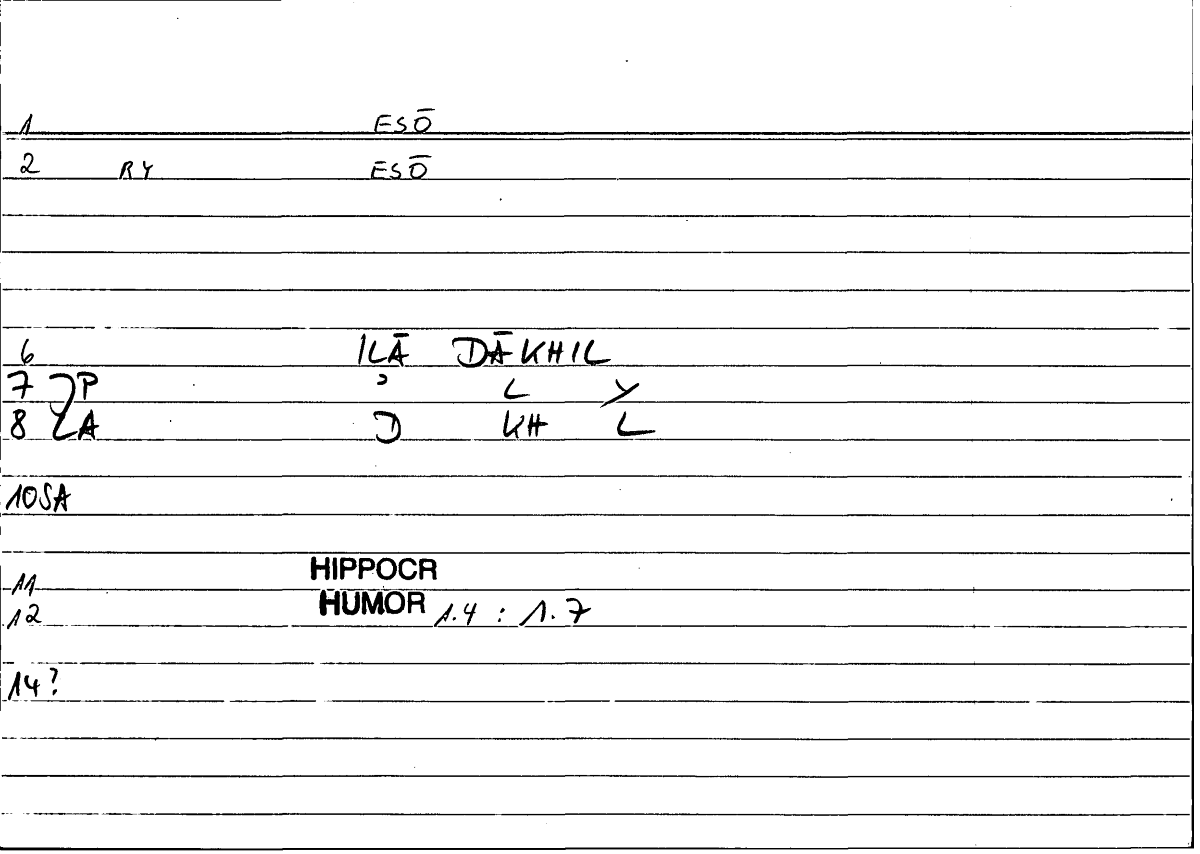 1 ESŌ
2 RY ESŌ
6 ILĀ DĀKHIL
7 P ʾ L Y
8 A D KH L
10SA
11 HIPPOCR
12 HUMOR 1.4 : 1.7
14?